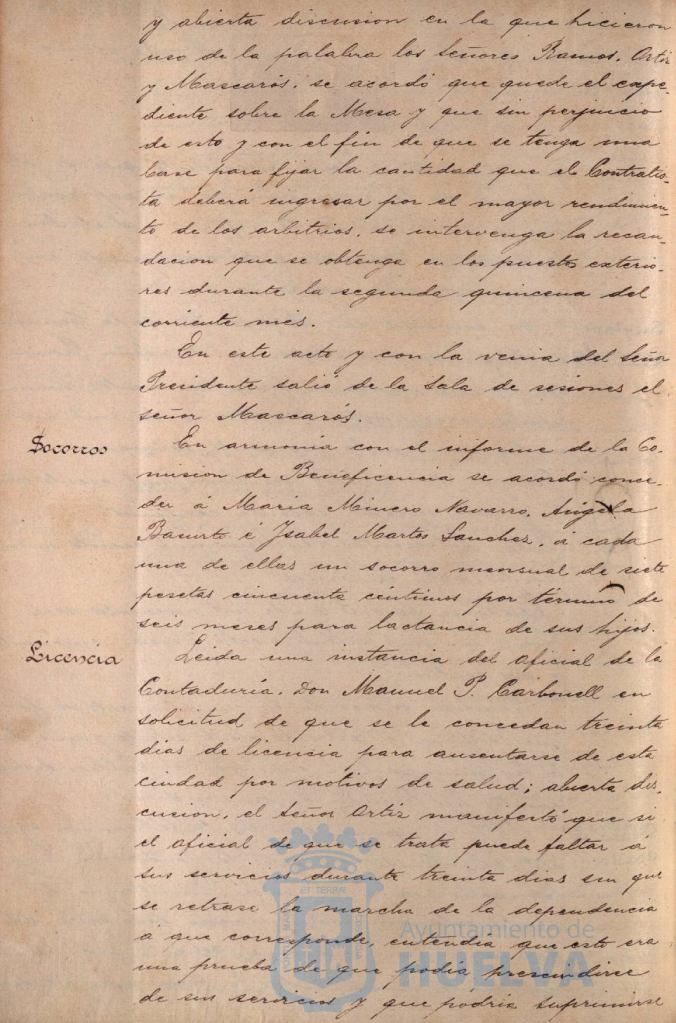 y abierta discusion en la que hicieron
uso de la palabra los Señores Ramos, Ortiz
y Mascarós, se acordó que quede el expe-
diente sobre la Mesa y que sin perjuicio
de esto y con el fin de que se tenga una
base para fijar la cantidad que el Contratis-
ta deberá ingresar por el mayor rendimien-
to de los arbitrios, se intervenga la recau-
dacion que se obtenga en los puestos exterio-
res durante la segunda quincena del
corriente mes.
En este acto y con la venia del Señor
Presidente salió de la Sala de sesiones el
señor Mascarós.
Socorros
En armonía con el informe de la Co-
mision de Beneficencia se acordó conce-
der á Maria Minero Navarro, Angela
é Isabel Martos Sanchez, á cada
una de ellas un socorro mensual de siete
pesetas cincuenta céntimos por término de
seis meses para lactancia de sus hijos.
Licencia
Leida una instancia del oficial de la
Contaduría, Don Manuel P. Carbonell en
solicitud de que se le concedan treinta
dias de licencia para ausentarse de esta
ciudad por motivos de salud; abierta dis-
cusion, el Señor Ortiz manifestó que si
el oficial de que se trata puede faltar á
sus servicios durante treinta dias sin que
se retrase la marcha de la dependencia
á que corresponde, entendia que esto era
una prueba de que podia prescindirse
de sus servicios y que podria suprimirse
Ayuntamiento de
HUELVA